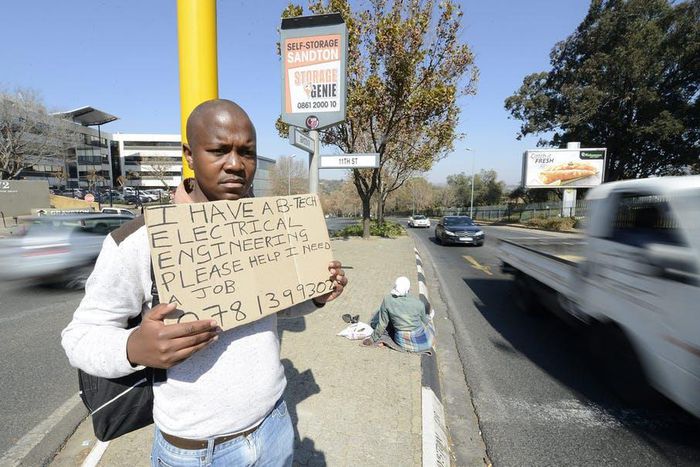 SELF-STORAGE
SANDTON
STORAGE
GENIE
0861 2000 10
11TH ST
FRESH
I HAVE A B-TECH
ELECTRICAL
ENGINEERING
PLEASE HELP I NEED
A JOB
0781399302